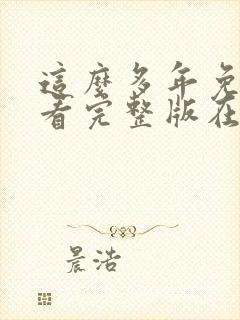 這麼多年免
看完整版在
晨浩